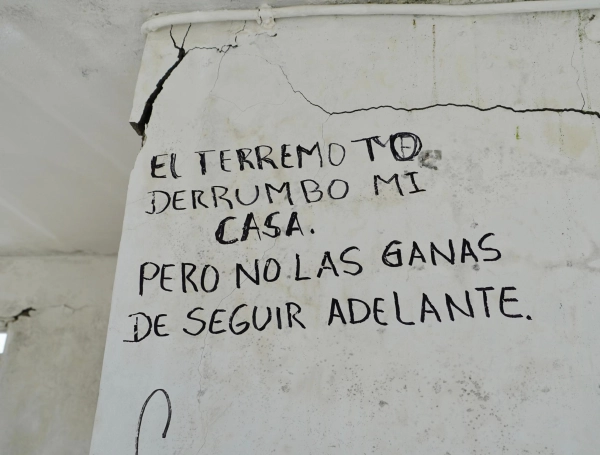 EL TERREMOTO
DERRUMBO MI
CASA.
PERO NO LAS GANAS
DE SEGUIR ADELANTE.